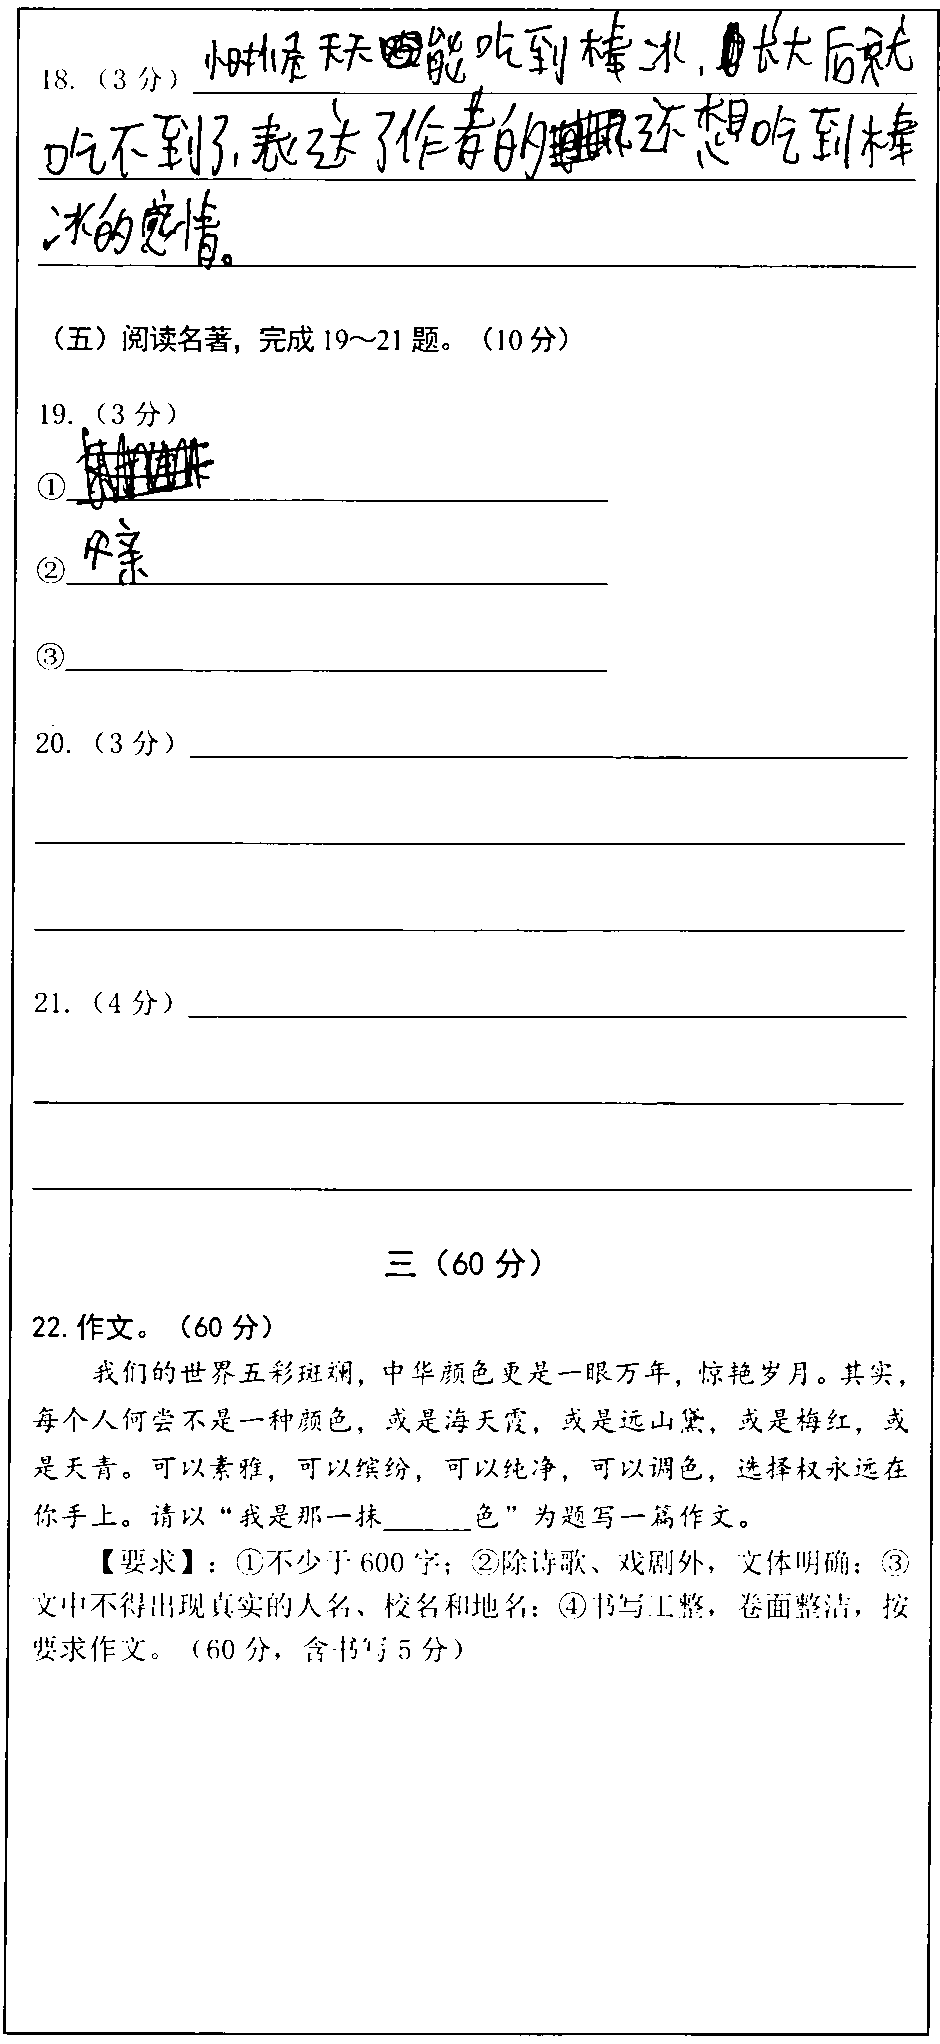 18.（3 分）小时候天天能吃到棒冰，长大后就
吃不到了，表达了作者的还想吃到棒
冰的感情。
（五）阅读名著，完成 19～21 题。（10 分）
19.（3 分）
①
② 母亲
③
20.（3 分）
21.（4 分）
三（60 分）
22. 作文。（60 分）
我们的世界五彩斑斓，中华颜色更是一眼万年，惊艳岁月。其实，
每个人何尝不是一种颜色，或是海天霞，或是远山黛，或是梅红，或
是天青。可以素雅，可以缤纷，可以纯净，可以调色，选择权永远在
你手上。请以“我是那一抹______色”为题写一篇作文。
【要求】：①不少于 600 字；②除诗歌、戏剧外，文体明确；③
文中不得出现真实的人名、校名和地名；④书写工整，卷面整洁，按
要求作文。（60 分，含书写 5 分）